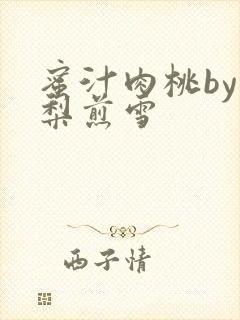 蜜汁肉桃by
梨煎雪
西子情